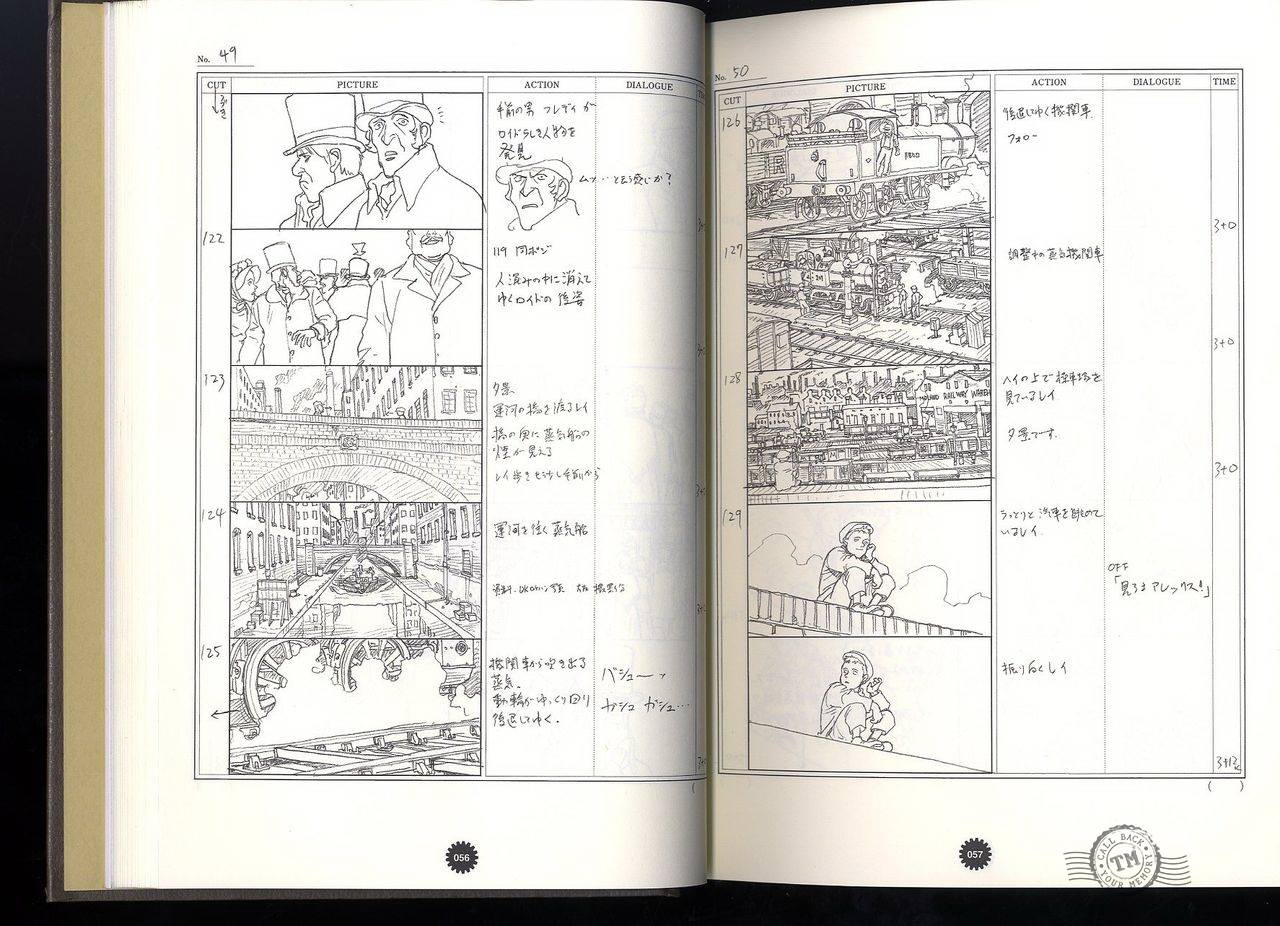 No. 49
CUT PICTURE ACTION DIALOGUE
手前の男 フレディが
ロイドらしき人物を
発見
ムッ…と言う感じか?
122
119 同ポジ
人混みの中に消えて
ゆくロイドの後姿
123
夕景
運河の橋を渡るレイ
橋の奥に蒸気船の
煙が見える
124
運河を往く蒸気船
125
機関車から吹き出る
蒸気.
動輪がゆっくり回り
後退してゆく.
バシューッ
ガシュ ガシュ…
056
No. 50
CUT PICTURE ACTION DIALOGUE TIME
126
後退してゆく機関車.
フォロー
3+0
127
調整中の蒸気機関車
3+0
128
ヘイの上で操車場を
見ているレイ
夕景です.
MIDLAND RAILWAY
3+0
129
うっとりと汽車を眺めて
いるレイ.
OFF
「見ろよアレックス!」
振り向くレイ
3+12
( )
057
CALL BACK
TM
YOUR MEMORY